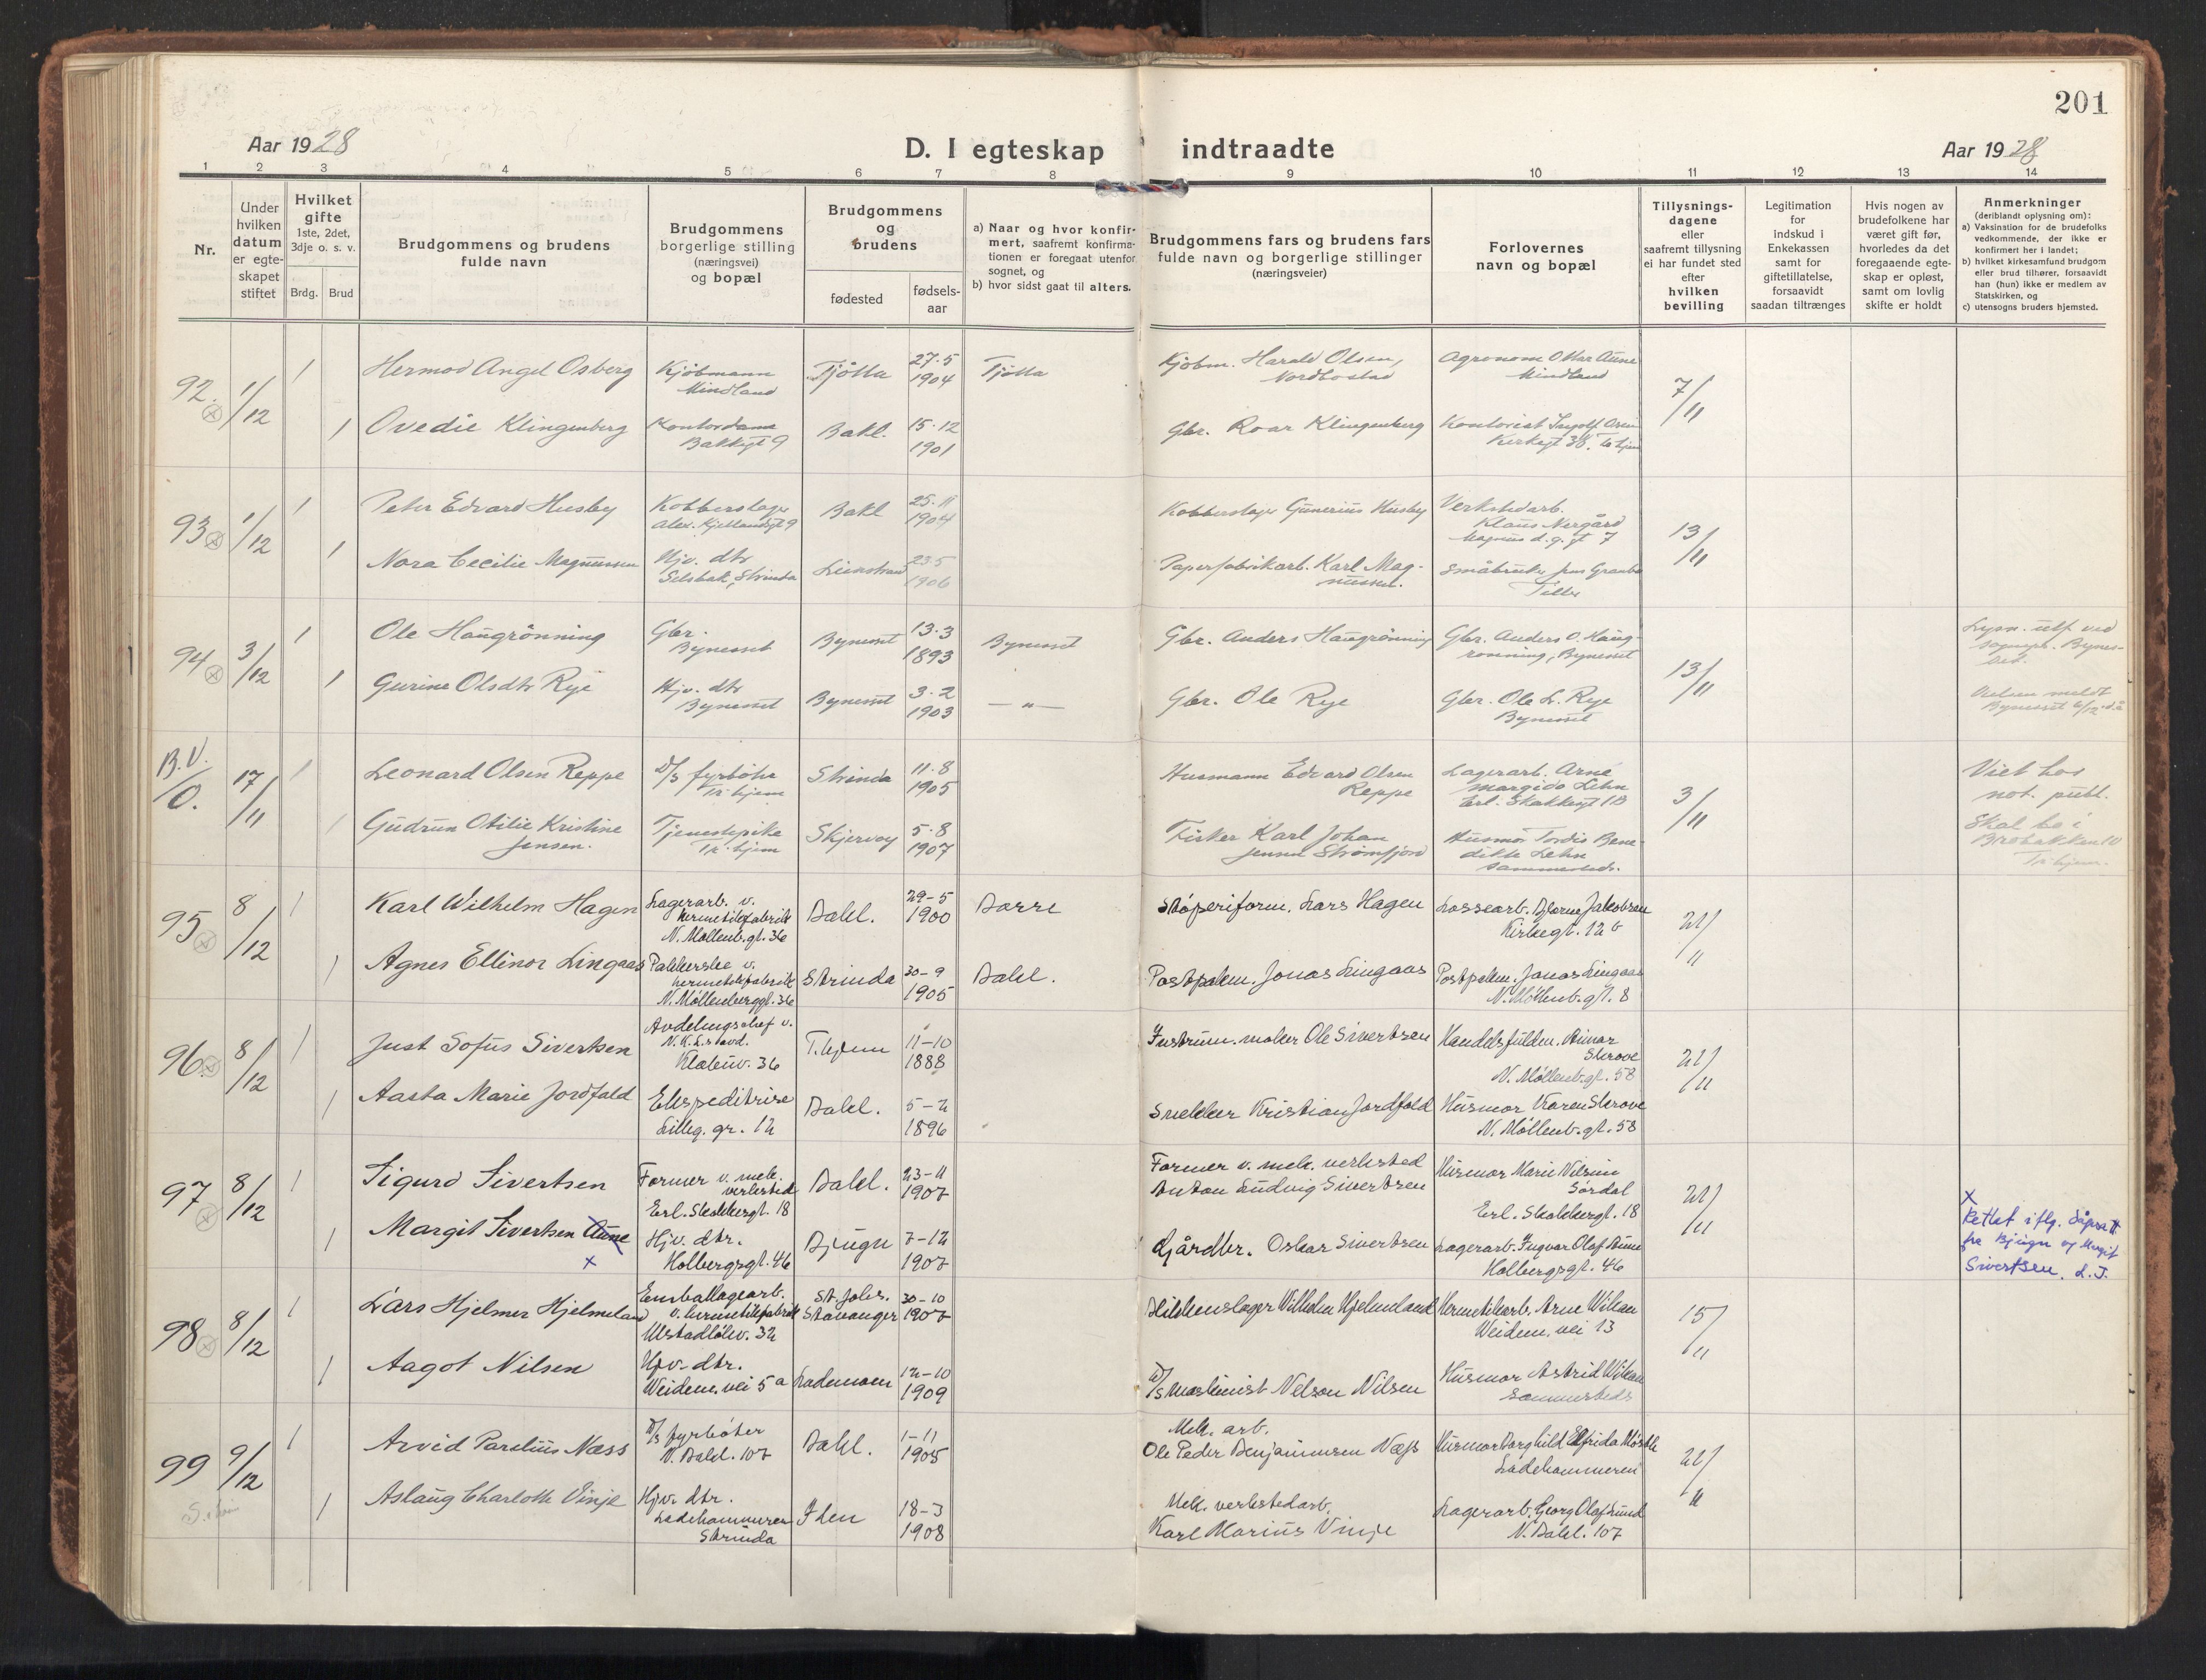 201
Aar 1928
D. I egteskap indtraadte
Aar 1928
1 2 3 4 5 6 7 8 9 10 11 12 13 14
Nr.
Under
hvilken
datum
er egte-
skapet
stiftet
Hvilket
gifte
1ste, 2det,
3dje o. s. v.
Brdg. Brud
Brudgommens og brudens
fulde navn
Brudgommens
borgerlige stilling
(næringsvei)
og bopæl
Brudgommens
og
brudens
fødested
fødsels-
aar
a) Naar og hvor konfir-
mert, saafremt konfirma-
tionen er foregaat utenfor
sognet, og
b) hvor sidst gaat til alters.
Brudgommens fars og brudens fars
fulde navn og borgerlige stillinger
(næringsveier)
Forlovernes
navn og bopæl
Tillysnings-
dagene
eller
saafremt tillysning
ei har fundet sted
efter
hvilken
bevilling
Legitimation
for
indskud i
Enkekassen
samt for
giftetillatelse,
forsaavidt
saadan tiltrænges
Hvis nogen av
brudefolkene har
været gift før,
hvorledes da det
foregaaende egte-
skap er opløst,
samt om lovlig
skifte er holdt
Anmerkninger
(deriblandt oplysning om):
a) Vaksination for de brudefolks
vedkommende, der ikke er
konfirmert her i landet;
b) hvilket kirkesamfund brudgom
eller brud tilhører, forsaavidt
han (hun) ikke er medlem av
Statskirken, og
c) utensogns bruders hjemsted.
92. 1/12
1
Hermod Angel Osberg
Kjøbmann
Mindland
Tjøtta
27·5
1904
Tjøtta
Kjøbm. Harald Olsen,
Nordbostad
Agronom Ottar Aune
Mindland
7/11
1
Ovedie Klingenberg
Kontordame
Bakkegt 9
Bakl.
15·12
1901
Gbr. Roar Klingenberg
Kontorist Ingolf
Kirkegt 38
93 1/12
1
Peter Edvard Husby
Kobberslager
Alex. Kjellandsgt 9
Bakl
25·11
1904
Kobberslager Gunerius Husby
Verkstedarb.
Klaus Nergård
Magnus d. g. gt 7
13/11
1
Nora Cecilie Magnussen
Hjv. dtr
Selsbak, Strinda
Leinstrand
23·5
1906
Papirfabrikarb. Karl Mag-
nussen.
Småbruker Jens
Tiller
94 3/12
1
Ole Haugrønning
Gbr.
Bynesset
Bynesset
13·3
1893
Bynesset
Gbr. Anders Haugrønning
Gbr. Anders O. Haug-
rønning, Bynesset
13/11
Lysn. utf. ved
sognepr. Bynes-
set.
1
Gurine Olsdtr Rye
Hjv. dtr
Bynesset
Bynesset
3·2
1903
— " —
Gbr. Ole Rye
Gbr. Ole L. Rye
Bynesset
Vielsen meldt
Bynesset 6/12 d.å
B.V./O. 17/11
1
Leonard Olsen Reppe
D/s fyrbøter
Tr.hjem
Strinda
11·8
1905
Husmann Edvard Olsen
Reppe
Lagerarb. Arne
Margido Lehn
Erl. Skakkesgt 18
3/11
Viet hos
not. publ.
1
Gudrun Otilie Kristine
Jensen.
Tjenestepike
Tr.hjem
Skjervøy
5·8
1907
Fisker Karl Johan
Jensen Strømfjord
Husmor Tordis Bene-
dikte Lehn
sammesteds.
Skal bo i
Brobakken 10
Tr.hjem.
95 8/12
1
Karl Wilhelm Hagen
Lagerarb. v.
hermetikfabrik
N. Møllenb.gt. 36
Bakl.
29–5
1900
Børre
Støperiform. Lars Hagen
Lossearb. Bjarne Jakobsen
Kirkegt. 12 b
21/11
1
Agnes Ellinor Lingaas
Pakkerske v.
hermetikfabrik
N. Møllenberggt. 36
Strinda
30–9
1905
Bakl.
Postpakm. Jonas Lingaas
Postpakm. Jonas Lingaas
N. Møllenb.gt. 8
96 8/12
1
Just Sofus Sivertsen
Avdelingschef v.
Klæbuv. 36
T.hjem
11–10
1888
Instrum.maker Ole Sivertsen
Handelsfuldm. Einar
Skrove
N. Møllenb.gt. 58
21/11
1
Aasta Marie Jordfald
Ekspeditrise
Lilleg. gr. 12
Bakl.
5–2
1896
Snekker Kristian Jordfald
Husmor Karen Skrove
N. Møllenb.gt. 58
97 8/12
1
Sigurd Sivertsen
Former v. mek.
verksted
Erl. Skakkesgt. 18
Bakl.
23–11
1907
Former v. mek. verksted
Anton Ludvig Sivertsen
Husmor Marie Nilsen
Sørdal
Erl. Skakkesgt. 18
21/11
1
Margit Sivertsen Aune
x
Hjv. dtr.
Holbergsgt. 46
Bjugn
7–12
1907
Gårdbr. Oskar Sivertsen
Lagerarb. Ingvar Olaf Aune
Holbergsgt. 46
x
Rettet iflg. dåpsatt
fra Bjugn og Margit
Sivertsen. L. J.
98 8/12
1
Lars Hjelmer Hjelmeland
Emballagearb.
v. hermetikfabrik
Ulstadløkv. 32
St. Johs.
Stavanger
30–10
1907
Blikkenslager Wilhelm Hjelmeland
Hermetikarb. Arne Wikan
Weidem. vei 13
15/11
1
Aagot Nilsen
Hjv. dtr.
Weidem. vei 5 a
Lademoen
12–10
1909
D/s maskinist Nelson Nilsen
Husmor Astrid Wikan
Sammesteds
99 9/12
1
Arvid Parelius Næss
D/s fyrbøter
N. Bakl. 107
Bakl.
1–11
1905
Mek. arb.
Ole Peder Benjaminsen Næss
Husmor Borghild Elfrida
Ladehammeren
21/11
1
Aslaug Charlotte Vinje
Hjv. dtr.
Ladehammeren
Strinda
Ilen
18–3
1908
Mek. verkstedarb.
Karl Marius Vinje
Lagerarb. Georg Olaf Sund
N. Bakl. 107